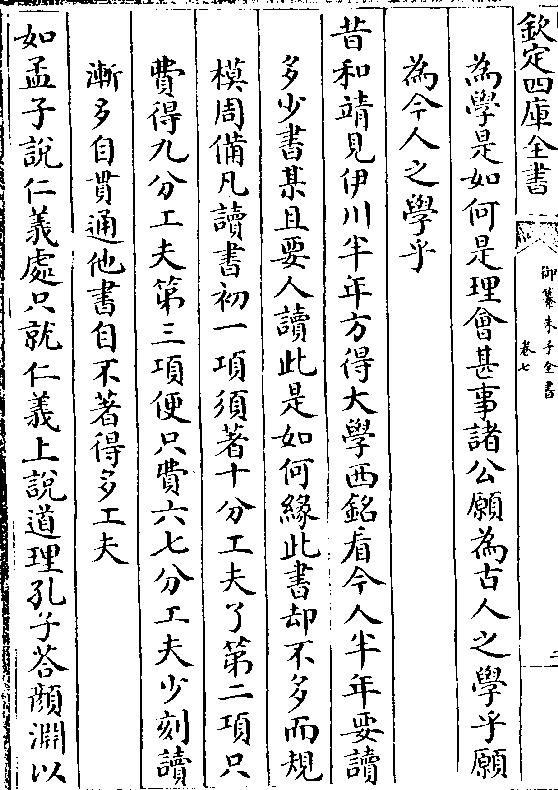 欽定四庫全書
御纂朱子全書
卷七
為學是如何是理會甚事諸公願為古人之學乎願
為今人之學乎
昔和靖見伊川半年方得大學西銘看今人半年要讀
多少書某且要人讀此是如何緣此書却不多而規
模周備凡讀書初一項須著十分工夫了第二項只
費得九分工夫第三項便只費六七分工夫少刻讀
漸多自貫通他書自不著得多工夫
如孟子說仁義處只就仁義上說道理孔子答顏淵以